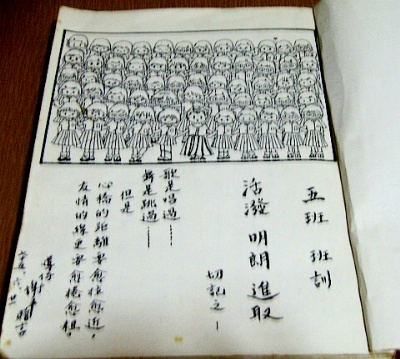 五班 班訓
活潑 明朗 進取
切記之—
歌是唱過……
舞是跳過……
但是
心橋的距離要愈拉愈近，
友情的線更要愈捲愈粗。
導師